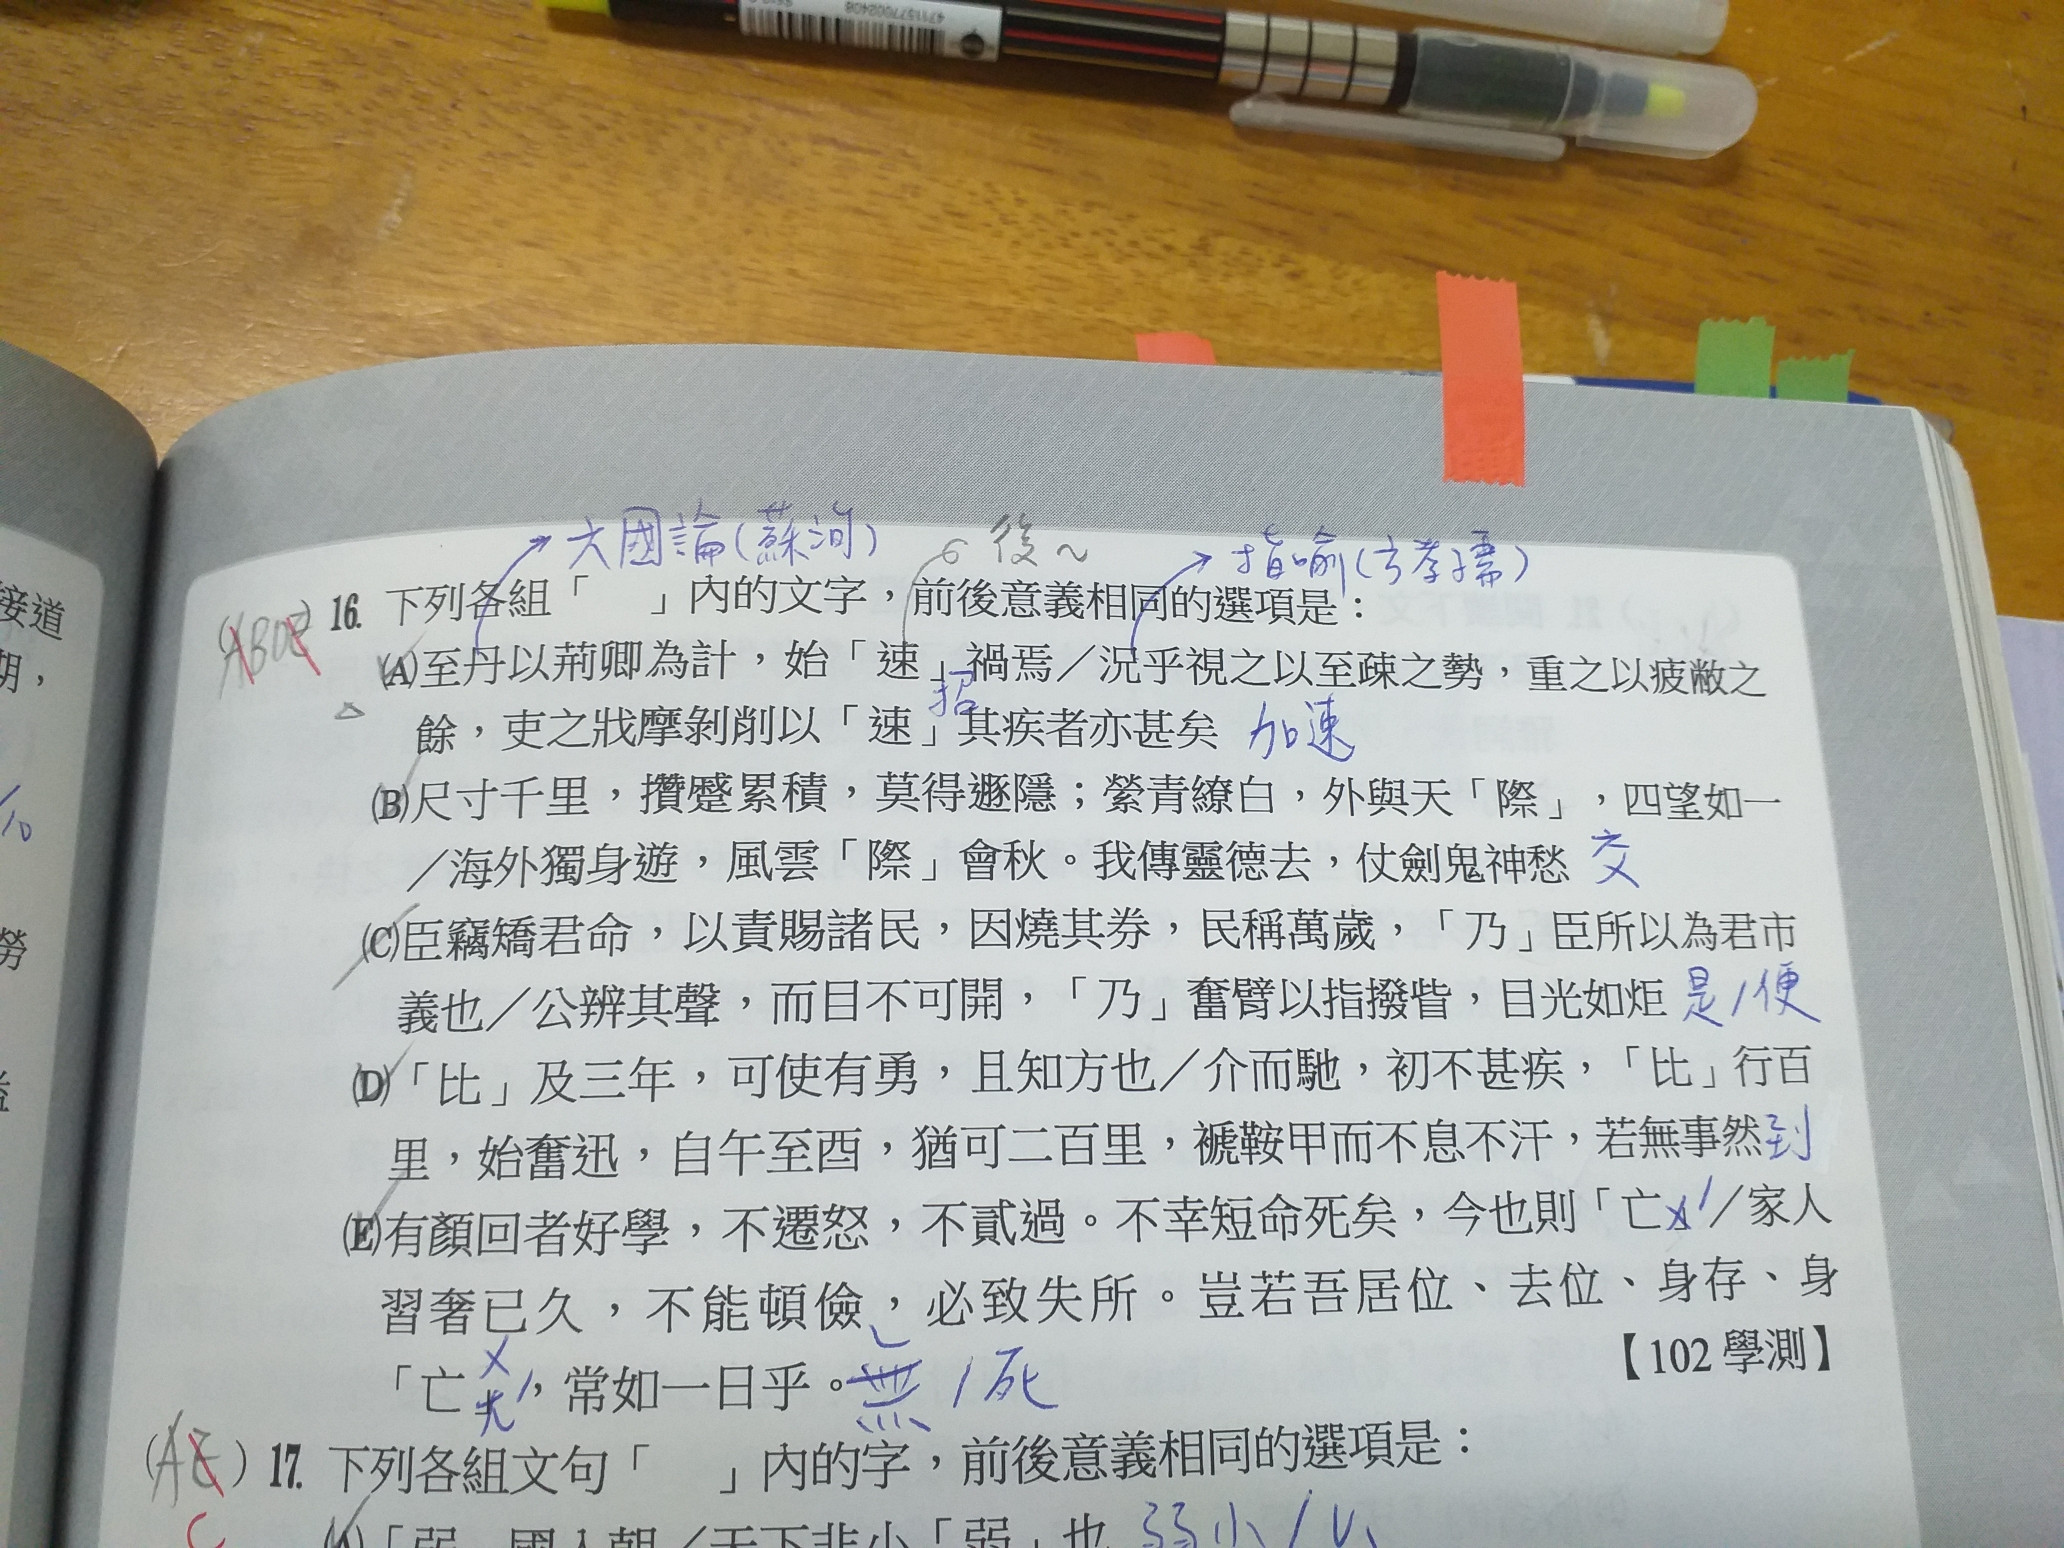 4711577002408
六國論(蘇洵)
後~
指喻(方孝孺)
(ABDE) 16. 下列各組「　」內的文字，前後意義相同的選項是：
(A)至丹以荊卿為計，始「速」禍焉／況乎視之以至疎之勢，重之以疲敝之
招
餘，吏之戕摩剝削以「速」其疾者亦甚矣 加速
(B)尺寸千里，攢蹙累積，莫得遯隱；縈青繚白，外與天「際」，四望如一
／海外獨身遊，風雲「際」會秋。我傳靈德去，仗劍鬼神愁 交
(C)臣竊矯君命，以責賜諸民，因燒其券，民稱萬歲，「乃」臣所以為君市
義也／公辨其聲，而目不可開，「乃」奮臂以指撥眥，目光如炬 是/便
(D)「比」及三年，可使有勇，且知方也／介而馳，初不甚疾，「比」行百
里，始奮迅，自午至酉，猶可二百里，褫鞍甲而不息不汗，若無事然 到
(E)有顏回者好學，不遷怒，不貳過。不幸短命死矣，今也則「亡」／家人
習奢已久，不能頓儉，必致失所。豈若吾居位、去位、身存、身
「亡」，常如一日乎。 無/死
【102 學測】
(AE) 17. 下列各組文句「　」內的字，前後意義相同的選項是：
C
(A)「弱」國入朝／天下非小「弱」也 弱小/
接道
期，
勞
益